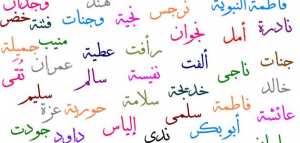 فاطمة النبوية نرجس هند وجدان
نادرة أمل نجوان نجية وجنات فتنة خضر
جنات ناجى ألفت رأفت عطية منيب جميلة
خالد خديجة نفيسة سالم عمران تقى
عائشة فاطمة سلمى سلامة حورية عزة سليم
أبو بكر ندى إلياس داود جودت